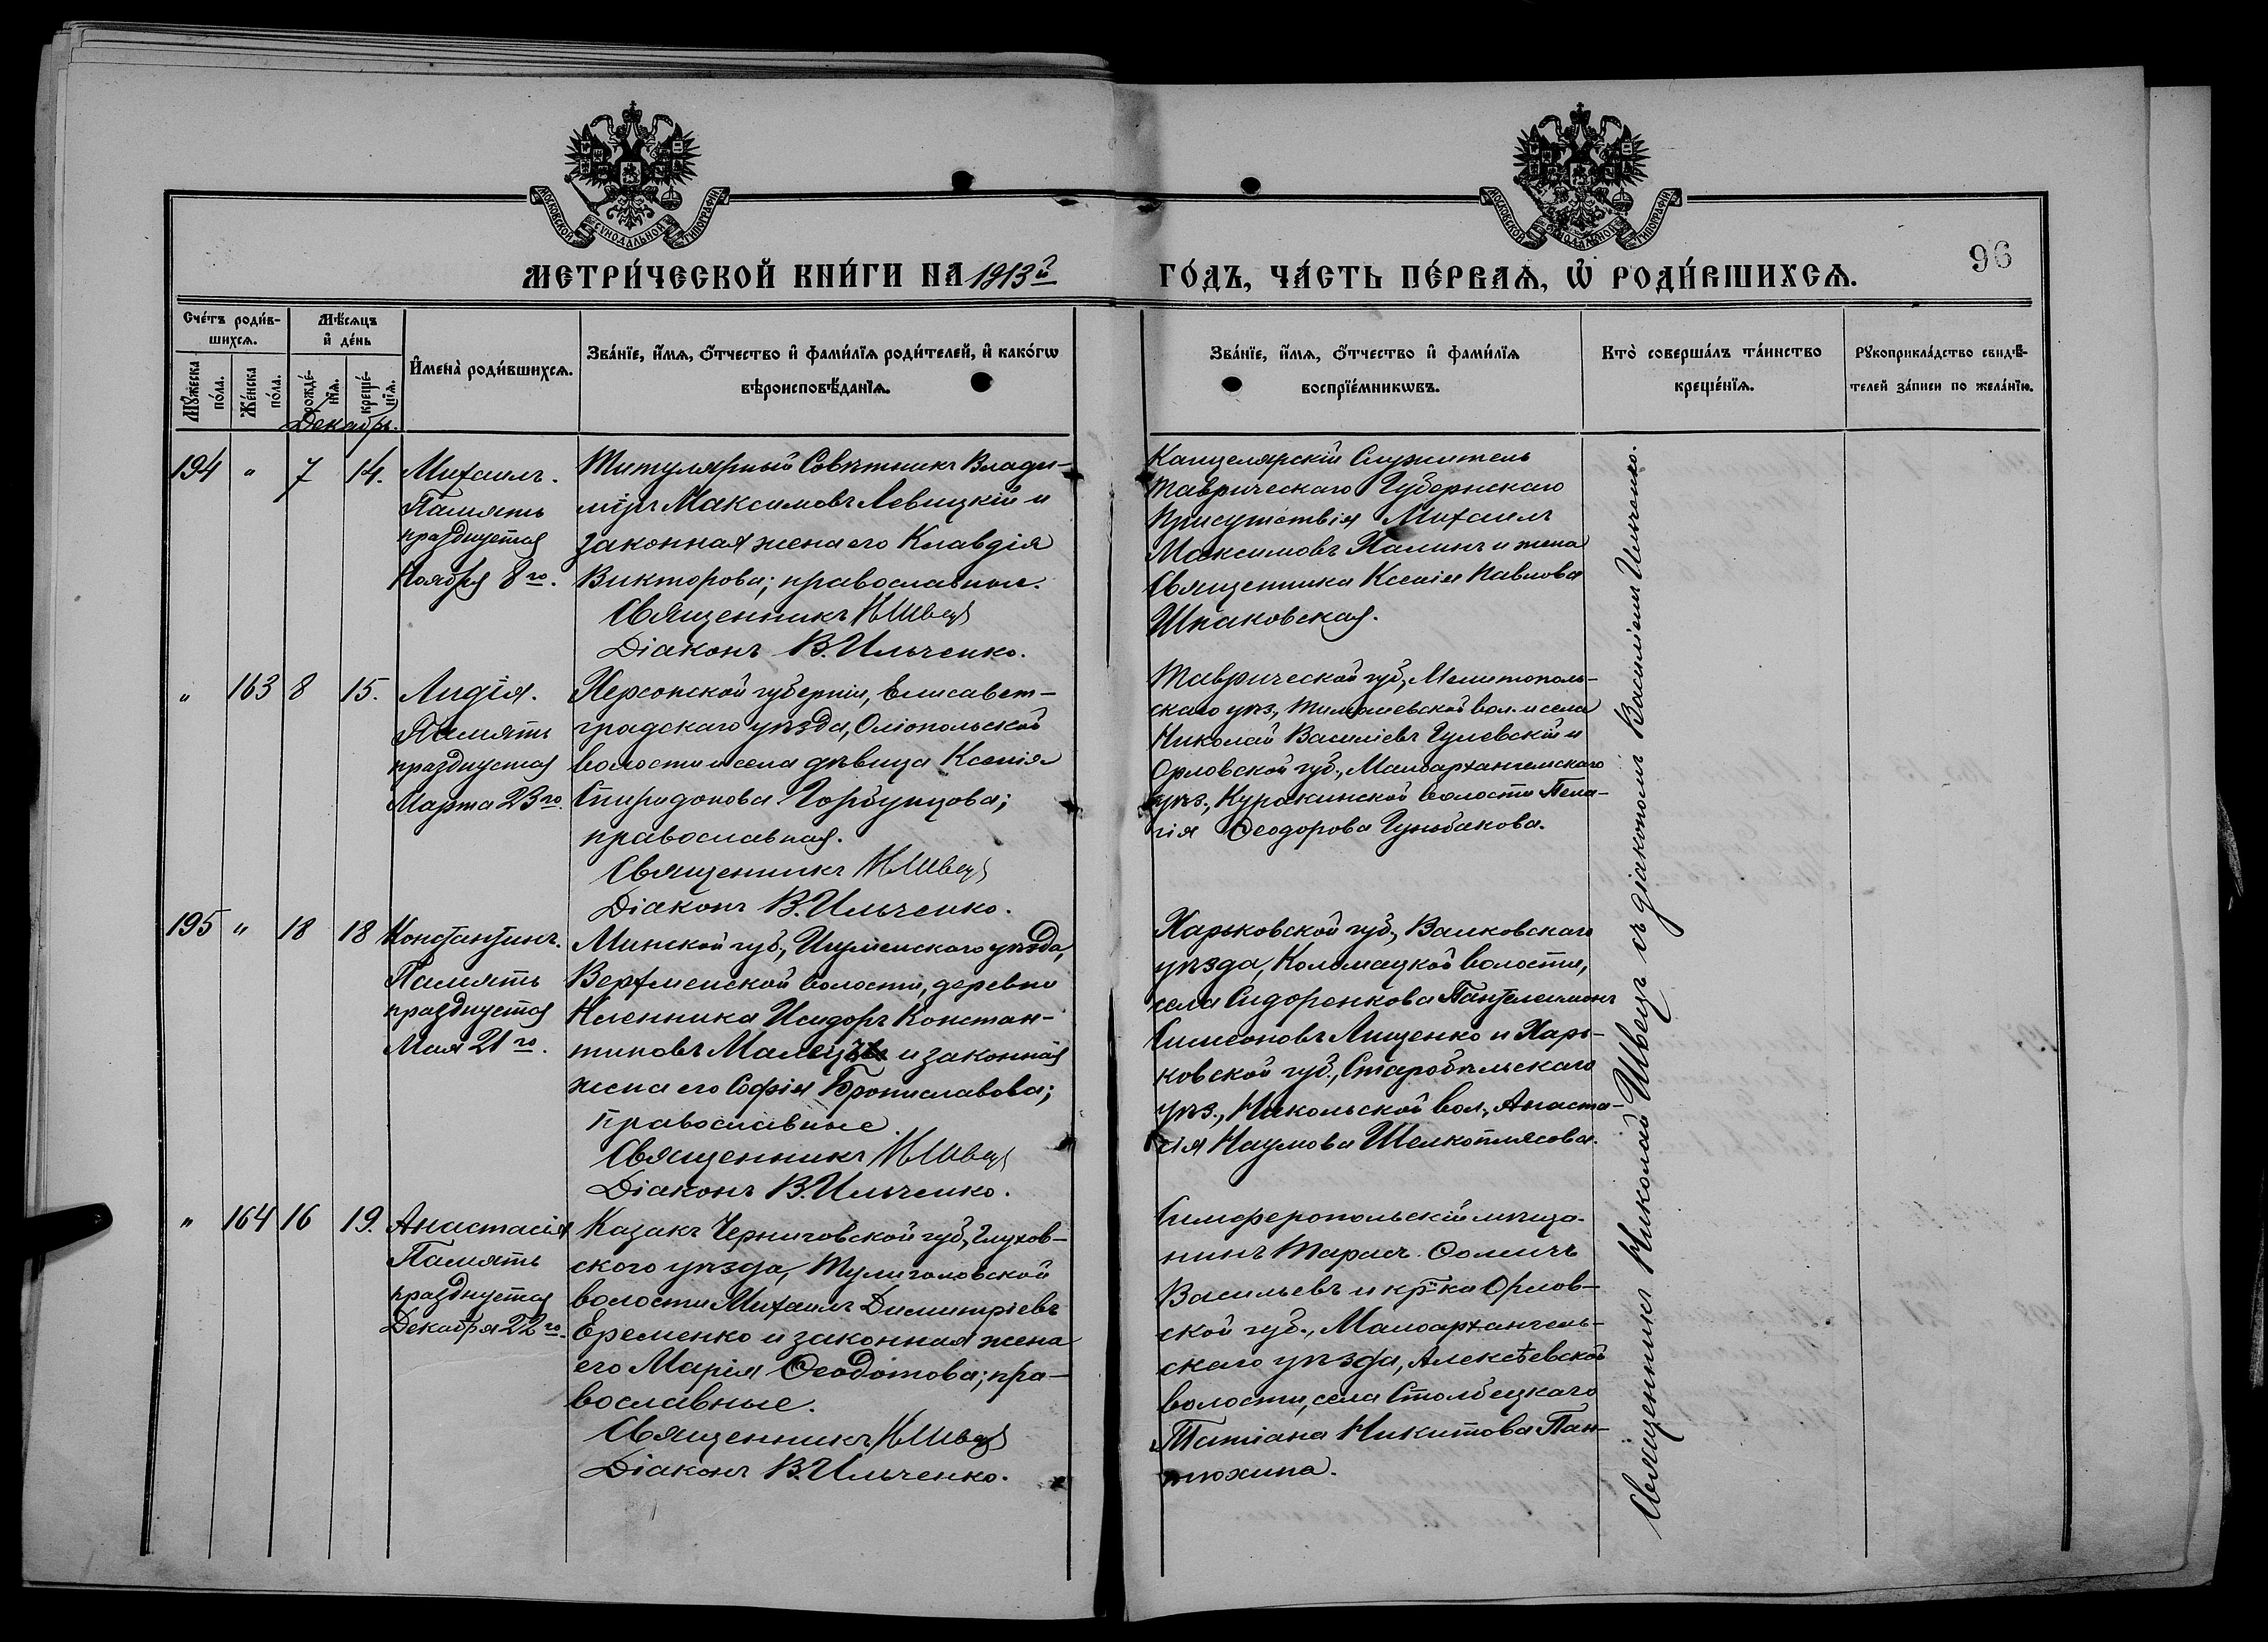 МОСКОВСКОЙ СѴНОДАЛЬНОЙ ТИПОГРАФІИ
МОСКОВСКОЙ СѴНОДАЛЬНОЙ ТИПОГРАФІИ
96
МЕТРИ́ЧЕСКОЙ КНИ́ГИ НА 1913й ГО́ДЪ, ЧА́СТЬ ПЕ́РВАѦ, Ѽ РОДИ́ВШИХСѦ.
Сче́тъ роди́в-
шихсѧ.
Мꙋжеска по́ла.
Же́нска по́ла.
Мѣ́сѧцъ
и҆ де́нь
рожде́нїѧ.
креще́нїѧ.
Декабрь.
И҆мена̀ роди́вшихсѧ.
Зва́нїе, и҆́мѧ, ѻ҆́тчество и҆ фами́лїѧ роди́телей, и҆ како́гѡ
вѣроисповѣ́данїѧ.
Зва́нїе, и҆́мѧ, ѻ҆́тчество и҆ фами́лїѧ
воспрїе́мникѡвъ.
Кто̀ соверша́лъ та́инство
креще́нїѧ.
Рꙋкоприкла́дство свидѣ́-
телей за́писи по жела́нїю.
194 " 7 14.
Михаилъ.
Память
празднуется
Ноября 8го.
Титулярный Совѣтникъ Влади-
міръ Максимовъ Левицкій и
законная жена его Клавдія
Викторова; православные.
Священникъ Н Швецъ
Діаконъ В. Ильченко.
Канцелярскій Служитель
Таврическаго Губернскаго
Присутствія Михаилъ
Максимовъ Халинъ и жена
Священника Ксенія Павлова
Шпаковская.
" 163 8 15.
Лидія.
Память
празднуется
Марта 23го.
Херсонской губерніи, Елисавет-
градскаго уѣзда, Оліопольской
волости и села дѣвица Ксенія
Спиридонова Горбунцова;
православная.
Священникъ Н Швецъ
Діаконъ В. Ильченко.
Таврической губ., Мелитополь-
скаго уѣз., Тимошевской вол. и села
Николай Василіевъ Гулевскій и
Орловской губ., Малоархангельскаго
уѣз., Куракинской волости Пела-
гія Ѳеодорова
195 " 18 18
Константинъ.
Память
празднуется
Мая 21го.
Минской губ., Игуменскаго уѣзда,
Верхменской волости, деревни
Кленника Исидоръ Констан-
тиновъ и законная
жена его Софія Брониславова;
православные.
Священникъ Н Швецъ
Діаконъ В. Ильченко.
Харьковской губ., Валковскаго
уѣзда, Коломацкой волости,
села Сидоренкова Пантелеимонъ
Симеоновъ Лищенко и Харь-
ковской губ., Старобѣльскаго
уѣз., Никольской вол., Анаста-
сія Наумова Шелкоплясова.
" 164 16 19.
Анастасія
Память
празднуется
Декабря 22го.
Казакъ Черниговской губ., Глухов-
скаго уѣзда, Тулиголовской
волости Михаилъ Димитріевъ
Еременко и законная жена
его Марія Ѳеодотова; пра-
вославные.
Священникъ Н Швецъ
Діаконъ В. Ильченко.
Симферопольскій мѣща-
нинъ Тарасъ Ѳомичъ
Васильевъ и кр-ка Орлов-
ской губ., Малоархангель-
скаго уѣзда, Алексѣевской
волости, села Столбецкаго
Татіана Никитова Пан-
тюхина.
Священникъ Николай Швецъ съ діакономъ Василіемъ Ильченко.